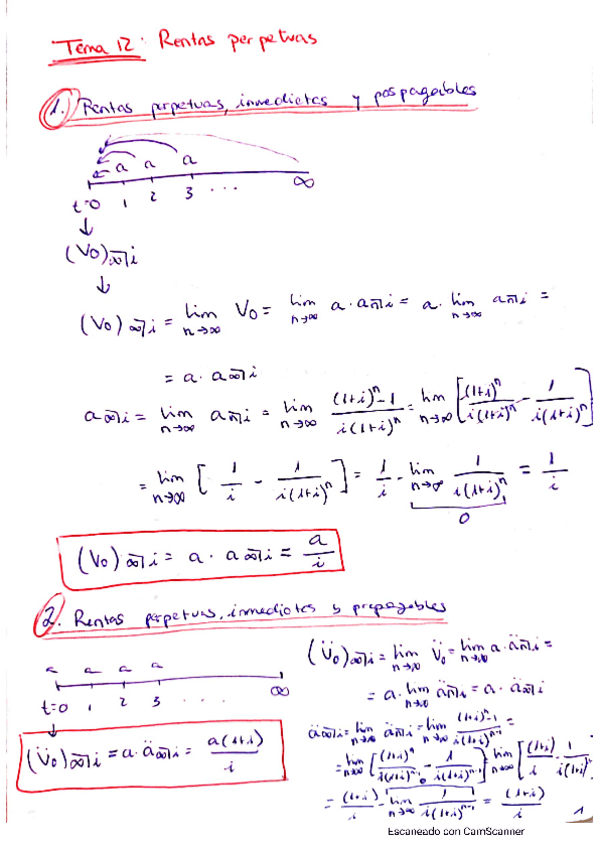 Tema 12: Rentas perpetuas
1. Rentas perpetuas, inmediatas y pospagables
a a a
t=0 1 2 3 ... ∞
↓
(V0)∞¬i
↓
(V0)∞¬i = lim n→∞ V0 = lim n→∞ a · an¬i = a · lim n→∞ an¬i =
= a · a∞¬i
a∞¬i = lim n→∞ an¬i = lim n→∞ (1+i)^n - 1 / i(1+i)^n = lim n→∞ [ (1+i)^n / i(1+i)^n - 1 / i(1+i)^n ]
= lim n→∞ [ 1/i - 1 / i(1+i)^n ] = 1/i - lim n→∞ 1 / i(1+i)^n = 1/i
0
(V0)∞¬i = a · a∞¬i = a/i
2. Rentas perpetuas, inmediatas y prepagables
a a a a
t=0 1 2 3 .... ∞
↓
(V̈0)∞¬i = a · ä∞¬i = a(1+i) / i
(V̈0)∞¬i = lim n→∞ V̈0 = lim n→∞ a · än¬i =
= a · lim n→∞ än¬i = a · ä∞¬i
ä∞¬i = lim n→∞ än¬i = lim n→∞ (1+i)^n - 1 / i(1+i)^n-1 =
= lim n→∞ [ (1+i)^n / i(1+i)^n-1 - 1 / i(1+i)^n-1 ] = lim n→∞ [ (1+i) / i - 1 / i(1+i)
0
= (1+i) / i - lim n→∞ 1 / i(1+i)^n-1 = (1+i) / i
1
Escaneado con CamScanner